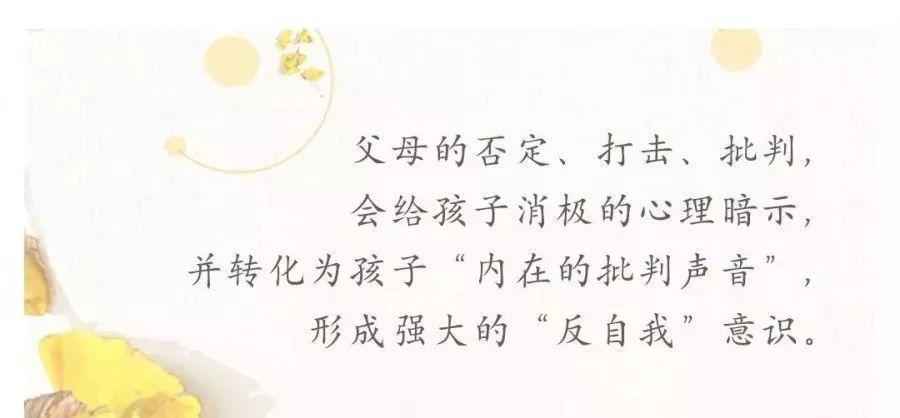 父母的否定、打击、批判，
会给孩子消极的心理暗示，
并转化为孩子“内在的批判声音”，
形成强大的“反自我”意识。